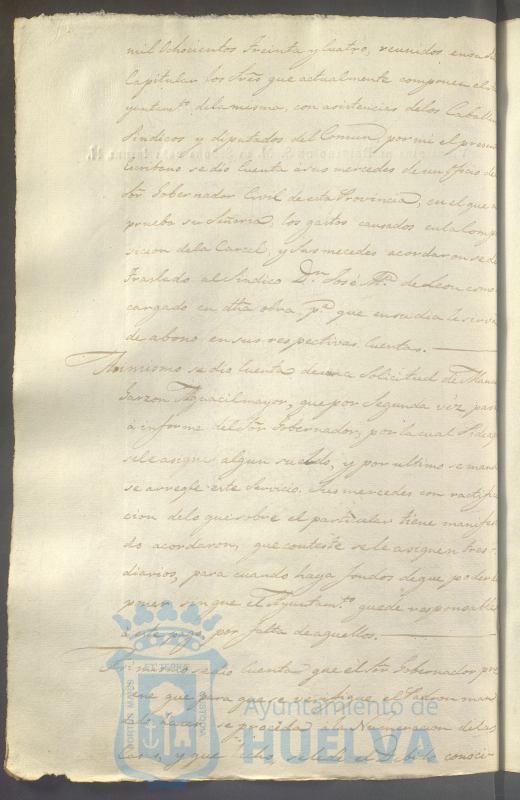 mil Ochocientos Treinta y Cuatro, reunidos en su
Capitular los Sres que actualmente componen el
yuntamto. de la misma, con asistencias de los Caball
Sindicos y diputados del Comun, por mi el presen
Escribano se dio Cuenta a sus mercedes de un Oficio de
Sor. Gobernador Civil de esta Provincia, en el que
prueba su Señoria, los gastos causados en la Comp
sicion de la Carcel, y sus mecedes acordaron se de
Traslado al Sindico Dn. José Ma. de Leon como
cargado en dha obra, pa. que en su dia le sirva
de abono en sus respectivas Cuentas.
Asimismo se dio Cuenta de una Solicitud de
Garzon Alguacil mayor, que por Segunda véz pasa
á informe del Sor. Gobernador, por la cual Pide
se le asigne algun sueldo, y por ultimo se manda
se arregle este Servicio. Sus mercedes con ractifica
cion de lo que sobre el particular tiene manifes
do acordaron, que conteste se le asignen tres
diarios, para cuando haya fondos de que poder
poner sin que el Ayuntamto. quede responsable
á este pago, por falta de aquellos.
se dio Cuenta que el Sor. Gobernador pre
viene que para que se el Padron man
dado hacer se proceda a la Numeracion de las
Casas, y que se le dé el Debido conoci
Ayuntamiento de
HUELVA